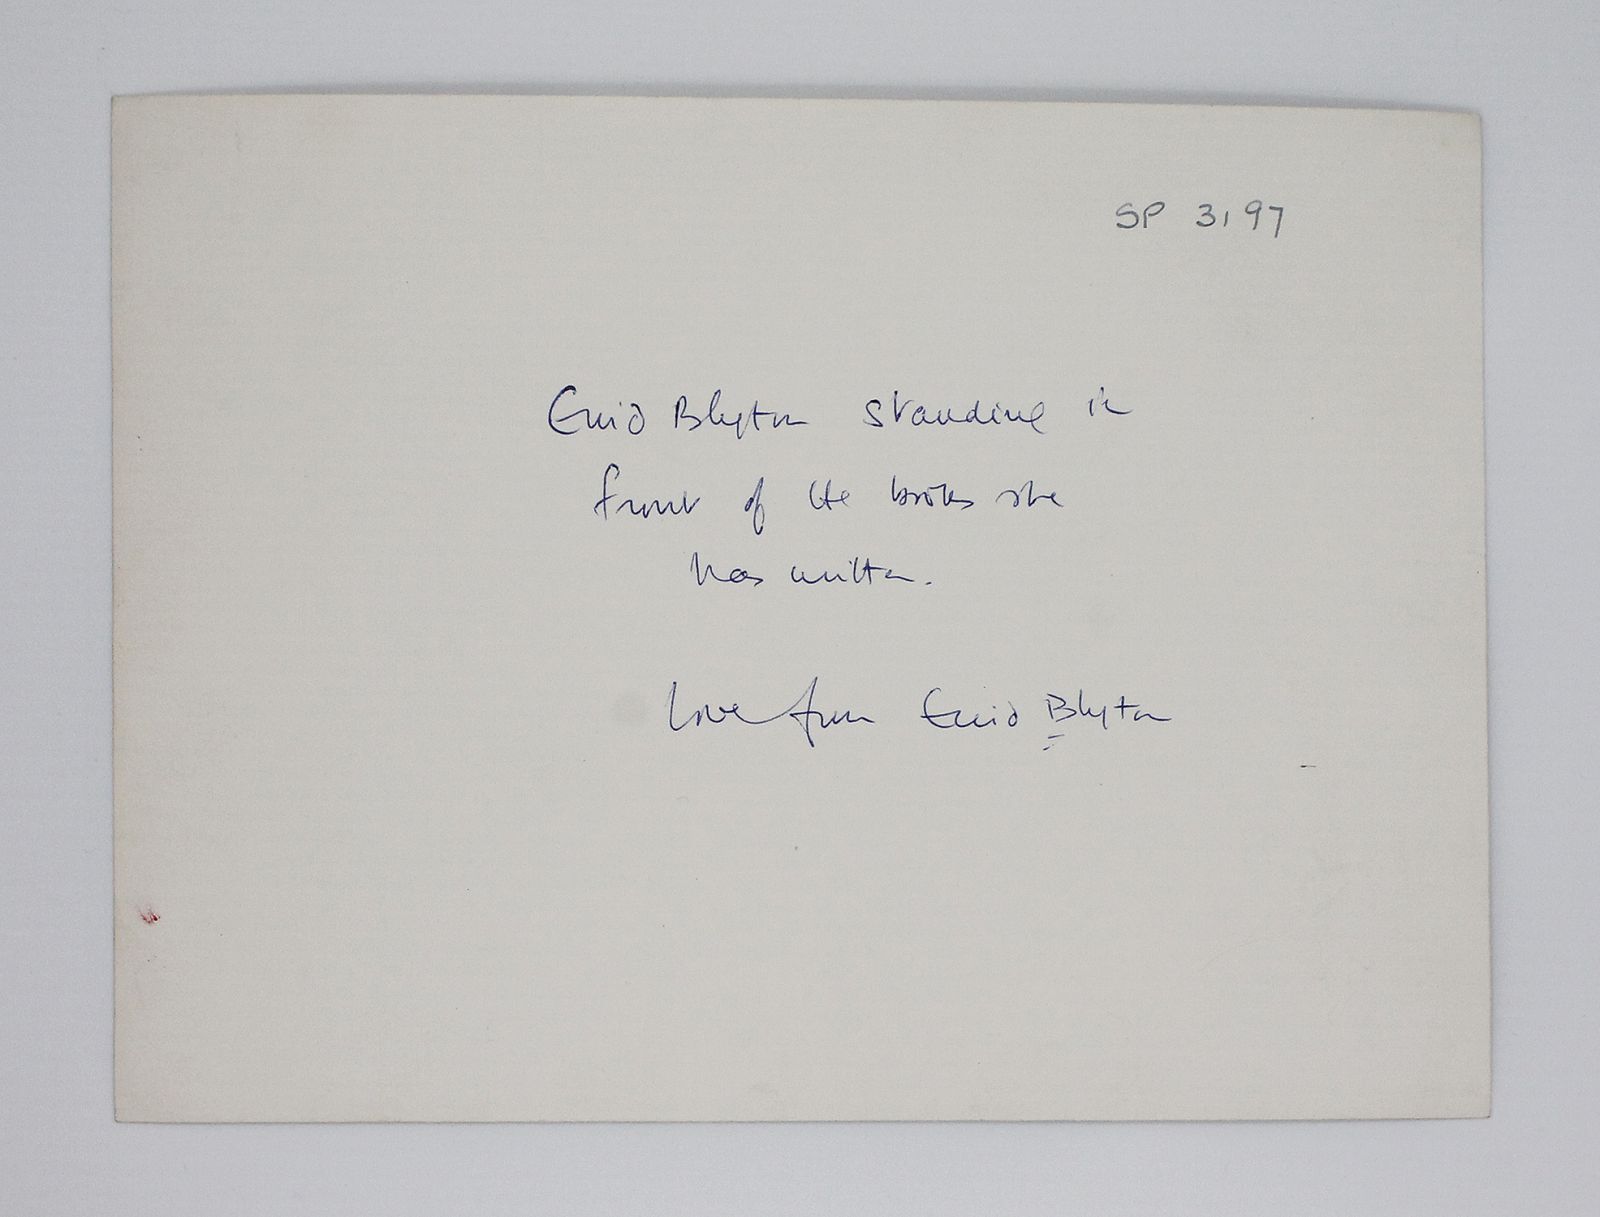 SP 3197
Enid Blyton standing in
front of the books she
has written.
Love from Enid Blyton